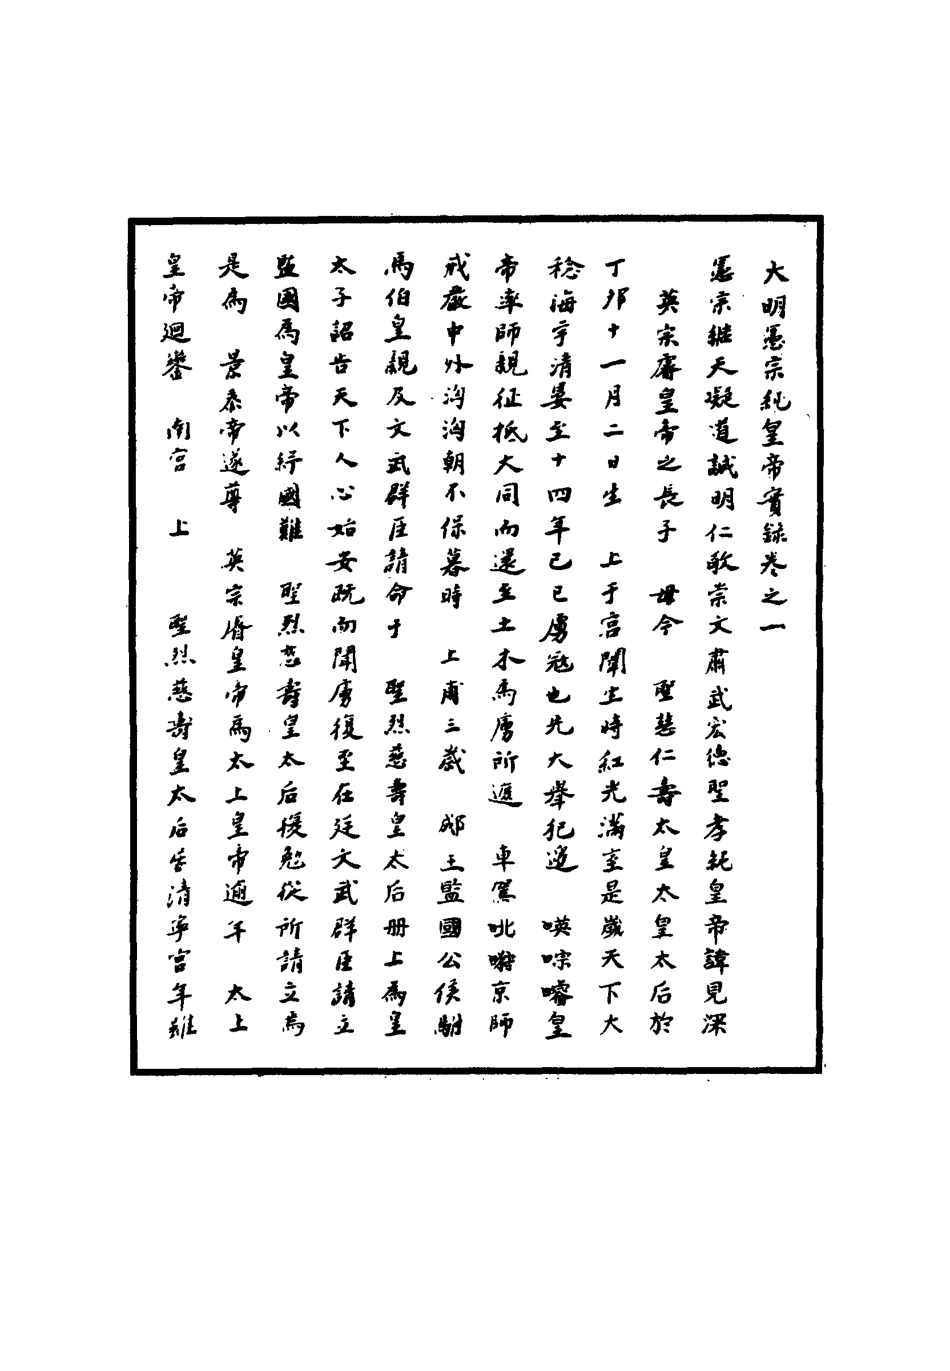 大明憲宗純皇帝實錄卷之一
憲宗繼天凝道誠明仁敬崇文肅武宏德聖孝純皇帝諱見深
英宗睿皇帝之長子 母今 聖慈仁壽太皇太皇太后於
丁卯十一月二日生 上于宮闈生時紅光滿室是歲天下大
稔海宇清晏至十四年己巳虜寇也先大舉犯邊 嘆啐嚕皇
帝率師親征抵大同而還至土木為虜所遮 車駕吡嚩京師
戒嚴中外洶洶朝不保暮時 上甫三歲 郕王監國公侯駙
馬伯皇親及文武群臣請命于 聖烈慈壽皇太后冊上為皇
太子詔告天下人心始安既而聞虜復至在廷文武群臣請立
監國為皇帝以紓國難 聖烈慈壽皇太后援勉從所請立為
是為 景泰帝遂尊 英宗睿皇帝為太上皇帝逾年 太上
皇帝迴鑾 南宮 上 聖烈慈壽皇太后居清寧宮年雖